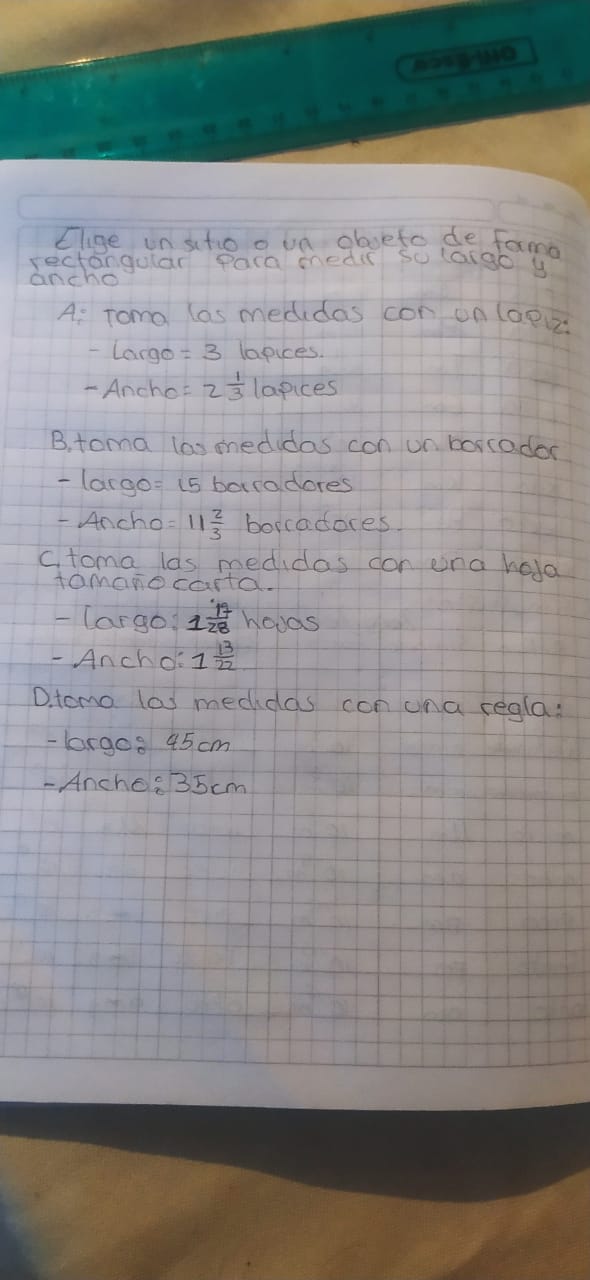 Elige un sitio o un objeto de forma
rectangular para medir su largo y
ancho
A: Toma las medidas con un lapiz:
- Largo = 3 lapices.
- Ancho = 2 1/3 lapices
B. toma las medidas con un borrador
- largo = 15 borradores
- Ancho = 11 2/3 borradores.
C. toma las medidas con una hoja
tamaño carta.
- Largo: 1 17/28 hojas
- Ancho: 1 13/22
D. toma las medidas con una regla:
- largo: 45cm
- Ancho: 35cm